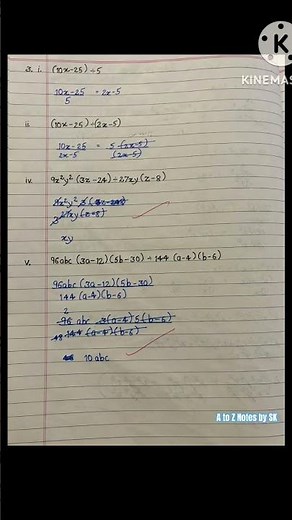 K
KINEMAS
3. i. (10x-25) ÷ 5
10x-25 = 2x-5
5
ii (10x-25) ÷ (2x-5)
10x-25 = 5 (2x-5)
2x-5 (2x-5)
iv. 9x²y² (3z-24) ÷ 27xy (z-8)
27xy(z-8)
xy
v. 96abc (3a-12) (5b-30) ÷ 144 (a-4) (b-6)
96abc (3a-12) (5b-30)
144 (a-4) (b-6)
2
96 abc 3(a-4) 5(b-6)
48 144 (a-4) (b-6)
10abc
A to Z Notes by SK